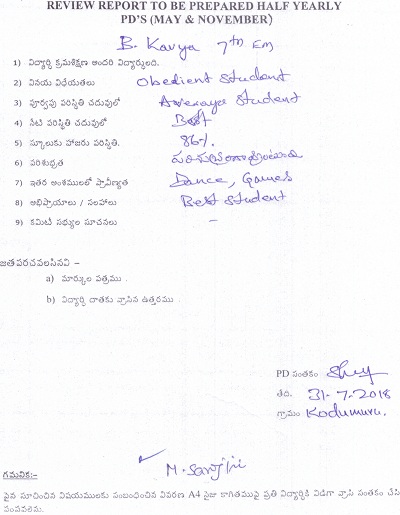 REVIEW REPORT TO BE PREPARED HALF YEARLY
PD'S (MAY & NOVEMBER)
B. Kavya 7th EM
1) విద్యార్థి క్రమశిక్షణ అందరి విద్యార్థులది.
2) వినయ విధేయతలు Obedient Student
3) పూర్వపు పరిస్థితి చదువులో Average Student
4) నేటి పరిస్థితి చదువులో Best
5) స్కూలుకు హాజరు పరిస్థితి. 86%
6) పరిశుభ్రత
7) ఇతర అంశములలో ప్రావీణ్యత Dance, Games
8) అభిప్రాయాలు / సలహాలు Best Student
9) కమిటీ సభ్యుల సూచనలు –
జతపరచవలసినవి –
a) మార్కుల పత్రము .
b) విద్యార్థి దాతకు వ్రాసిన ఉత్తరము .
PD సంతకం
తేది. 31-7-2018
గ్రామం Kodumuru.
గమనిక:-
పైన సూచించిన విషయములకు సంబంధించిన వివరణ A4 సైజు కాగితముపై ప్రతి విద్యార్థికి విడిగా వ్రాసి సంతకం చేసి
పంపవలెను.